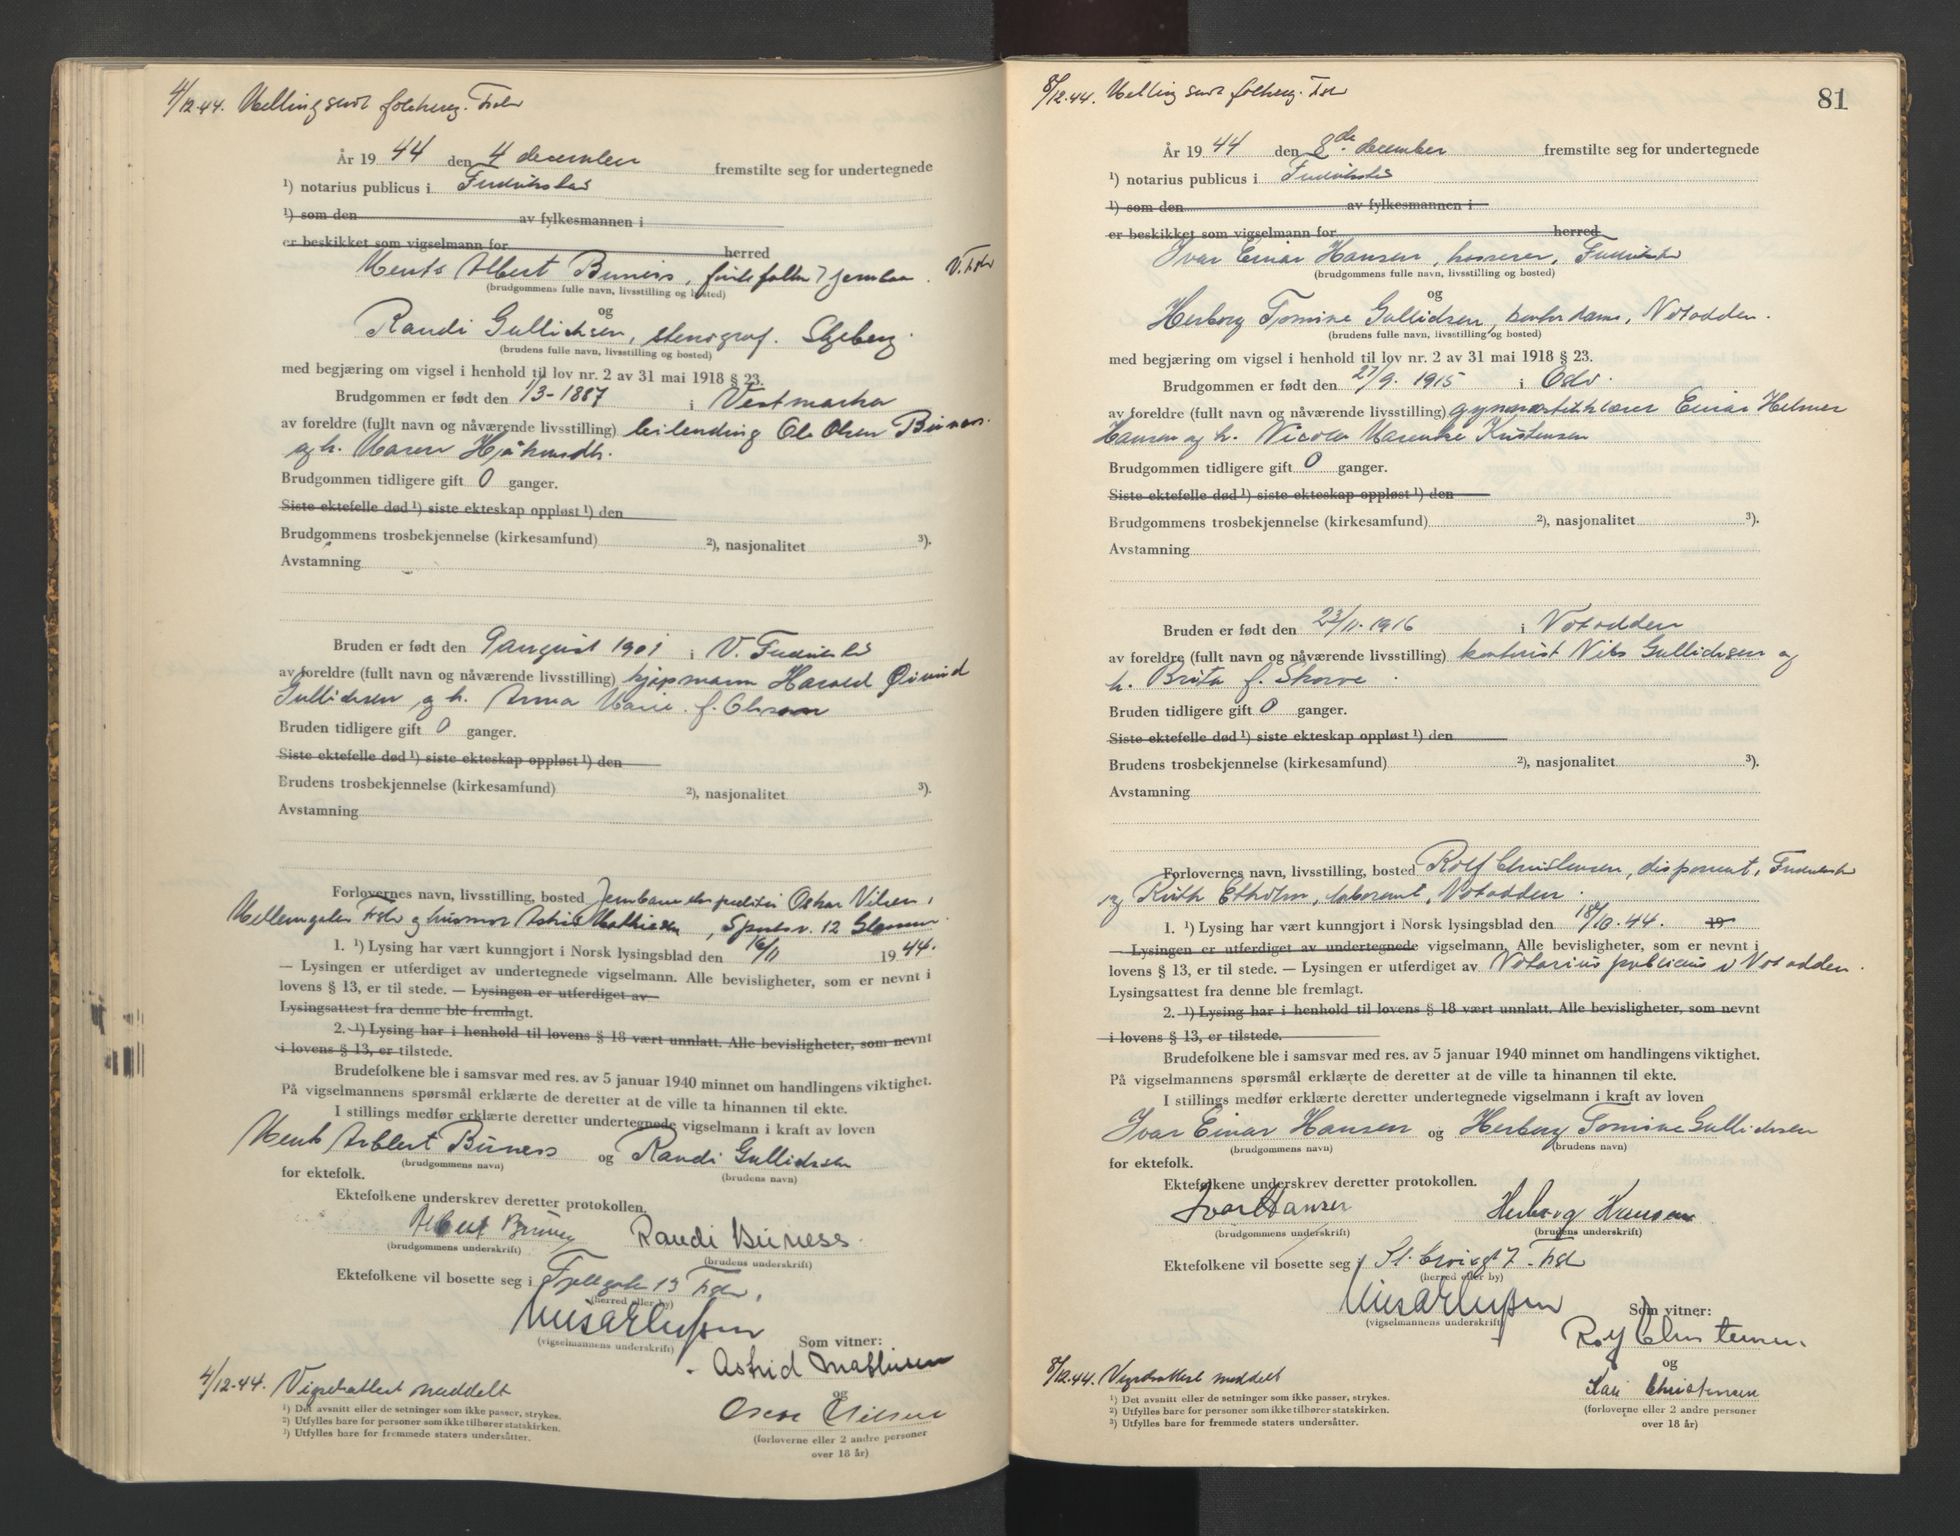 4/12-44. Melling sendt folkereg. Fstd
År 19 44 den 4 december fremstilte seg for undertegnede
¹) notarius publicus i Fredrikstad
¹) som den av fylkesmannen i
er beskikket som vigselmann for herred
Albert Buness, Jernban. V. Fstd
(brudgommens fulle navn, livsstilling og bosted)
og
Randi Gullichsen, stenograf. Skjeberg.
(brudens fulle navn, livsstilling og bosted)
med begjæring om vigsel i henhold til lov nr. 2 av 31 mai 1918 § 23.
Brudgommen er født den 1/3-1887 i Vestmarka
av foreldre (fullt navn og nåværende livsstilling) leilending Ole Olsen Buness
og h. Maren
Brudgommen tidligere gift 0 ganger.
Siste ektefelle død ¹) siste ekteskap oppløst ¹) den
Brudgommens trosbekjennelse (kirkesamfund) ²), nasjonalitet ³).
Avstamning
Bruden er født den 9 august 1901 i V. Fredrikstad
av foreldre (fullt navn og nåværende livsstilling) kjøpmann Harald Øivind
Gullichsen og h. Anna Marie f. Olsson
Bruden tidligere gift 0 ganger.
Siste ektefelle død ¹) siste ekteskap oppløst ¹) den
Brudens trosbekjennelse (kirkesamfund) ²), nasjonalitet ³).
Avstamning
Forlovernes navn, livsstilling, bosted Jernbaneekspeditør Oskar Nilsen,
Mellemgaten Fstd og husmor Astrid Mathisen, 12 Glemmen
1. ¹) Lysing har vært kunngjort i Norsk lysingsblad den 16/11 19 44.
— Lysingen er utferdiget av undertegnede vigselmann. Alle bevisligheter, som er nevnt i
lovens § 13, er til stede. — Lysingen er utferdiget av
Lysingsattest fra denne ble fremlagt.
2. ¹) Lysing har i henhold til lovens § 18 vært unnlatt. Alle bevisligheter, som nevnt
i lovens § 13, er tilstede.
Brudefolkene ble i samsvar med res. av 5 januar 1940 minnet om handlingens viktighet.
På vigselmannens spørsmål erklærte de deretter at de ville ta hinannen til ekte.
I stillings medfør erklærte deretter undertegnede vigselmann i kraft av loven
Albert Buness og Randi Gullichsen
(brudgommens navn) (brudens navn)
for ektefolk.
Ektefolkene underskrev deretter protokollen.
Albert Buness Randi Buness.
(brudgommens underskrift) (brudens underskrift)
Ektefolkene vil bosette seg i Fjellgate 13 Fstd.
(herred eller by)
(vigselmannens underskrift)
Som vitner:
Astrid Mathisen
og
Oscar Nilsen
(forloverne eller 2 andre personer
over 18 år)
4/12-44. Vigselattest meddelt
¹) Det avsnitt eller de setninger som ikke passer, strykes.
²) Utfylles bare for personer som ikke tilhører statskirken.
³) Utfylles bare for fremmede staters undersåtter.
81
8/12-44. Melding sendt folkereg. Fstd
År 19 44 den 8de december fremstilte seg for undertegnede
¹) notarius publicus i Fredrikstad
¹) som den av fylkesmannen i
er beskikket som vigselmann for herred
Ivar Einar Hansen, kasserer, Fredrikstad
(brudgommens fulle navn, livsstilling og bosted)
og
Herborg Tomine Gullichsen, kontordame, Notodden.
(brudens fulle navn, livsstilling og bosted)
med begjæring om vigsel i henhold til lov nr. 2 av 31 mai 1918 § 23.
Brudgommen er født den 27/9. 1915 i Oslo.
av foreldre (fullt navn og nåværende livsstilling) gymnastikklærer Einar Helmer
Hansen og h. Nicola Marenke Kristensen
Brudgommen tidligere gift 0 ganger.
Siste ektefelle død ¹) siste ekteskap oppløst ¹) den
Brudgommens trosbekjennelse (kirkesamfund) ²), nasjonalitet ³).
Avstamning
Bruden er født den 23/11-1916 i Notodden
av foreldre (fullt navn og nåværende livsstilling) kontorist Nils Gullichsen og
h. Brita f. Skorve.
Bruden tidligere gift 0 ganger.
Siste ektefelle død ¹) siste ekteskap oppløst ¹) den
Brudens trosbekjennelse (kirkesamfund) ²), nasjonalitet ³).
Avstamning
Forlovernes navn, livsstilling, bosted Rolf Christensen, disponent, Fredrikstad
og Ruth Etholm, laborant, Notodden.
1. ¹) Lysing har vært kunngjort i Norsk lysingsblad den 18/10-44. 19
— Lysingen er utferdiget av undertegnede vigselmann. Alle bevisligheter, som er nevnt i
lovens § 13, er til stede. — Lysingen er utferdiget av Notarius publicus i Notodden.
Lysingsattest fra denne ble fremlagt.
2. ¹) Lysing har i henhold til lovens § 18 vært unnlatt. Alle bevisligheter, som nevnt
i lovens § 13, er tilstede.
Brudefolkene ble i samsvar med res. av 5 januar 1940 minnet om handlingens viktighet.
På vigselmannens spørsmål erklærte de deretter at de ville ta hinannen til ekte.
I stillings medfør erklærte deretter undertegnede vigselmann i kraft av loven
Ivar Einar Hansen og Herborg Tomine Gullichsen
(brudgommens navn) (brudens navn)
for ektefolk.
Ektefolkene underskrev deretter protokollen.
Ivar E Hansen Herborg Hansen
(brudgommens underskrift) (brudens underskrift)
Ektefolkene vil bosette seg i St. Croixgt 7. Fstd
(herred eller by)
(vigselmannens underskrift)
Som vitner:
Rolf Christensen.
og
Kari Christensen
(forloverne eller 2 andre personer
over 18 år)
8/12-44. Vigselattest meddelt
¹) Det avsnitt eller de setninger som ikke passer, strykes.
²) Utfylles bare for personer som ikke tilhører statskirken.
³) Utfylles bare for fremmede staters undersåtter.